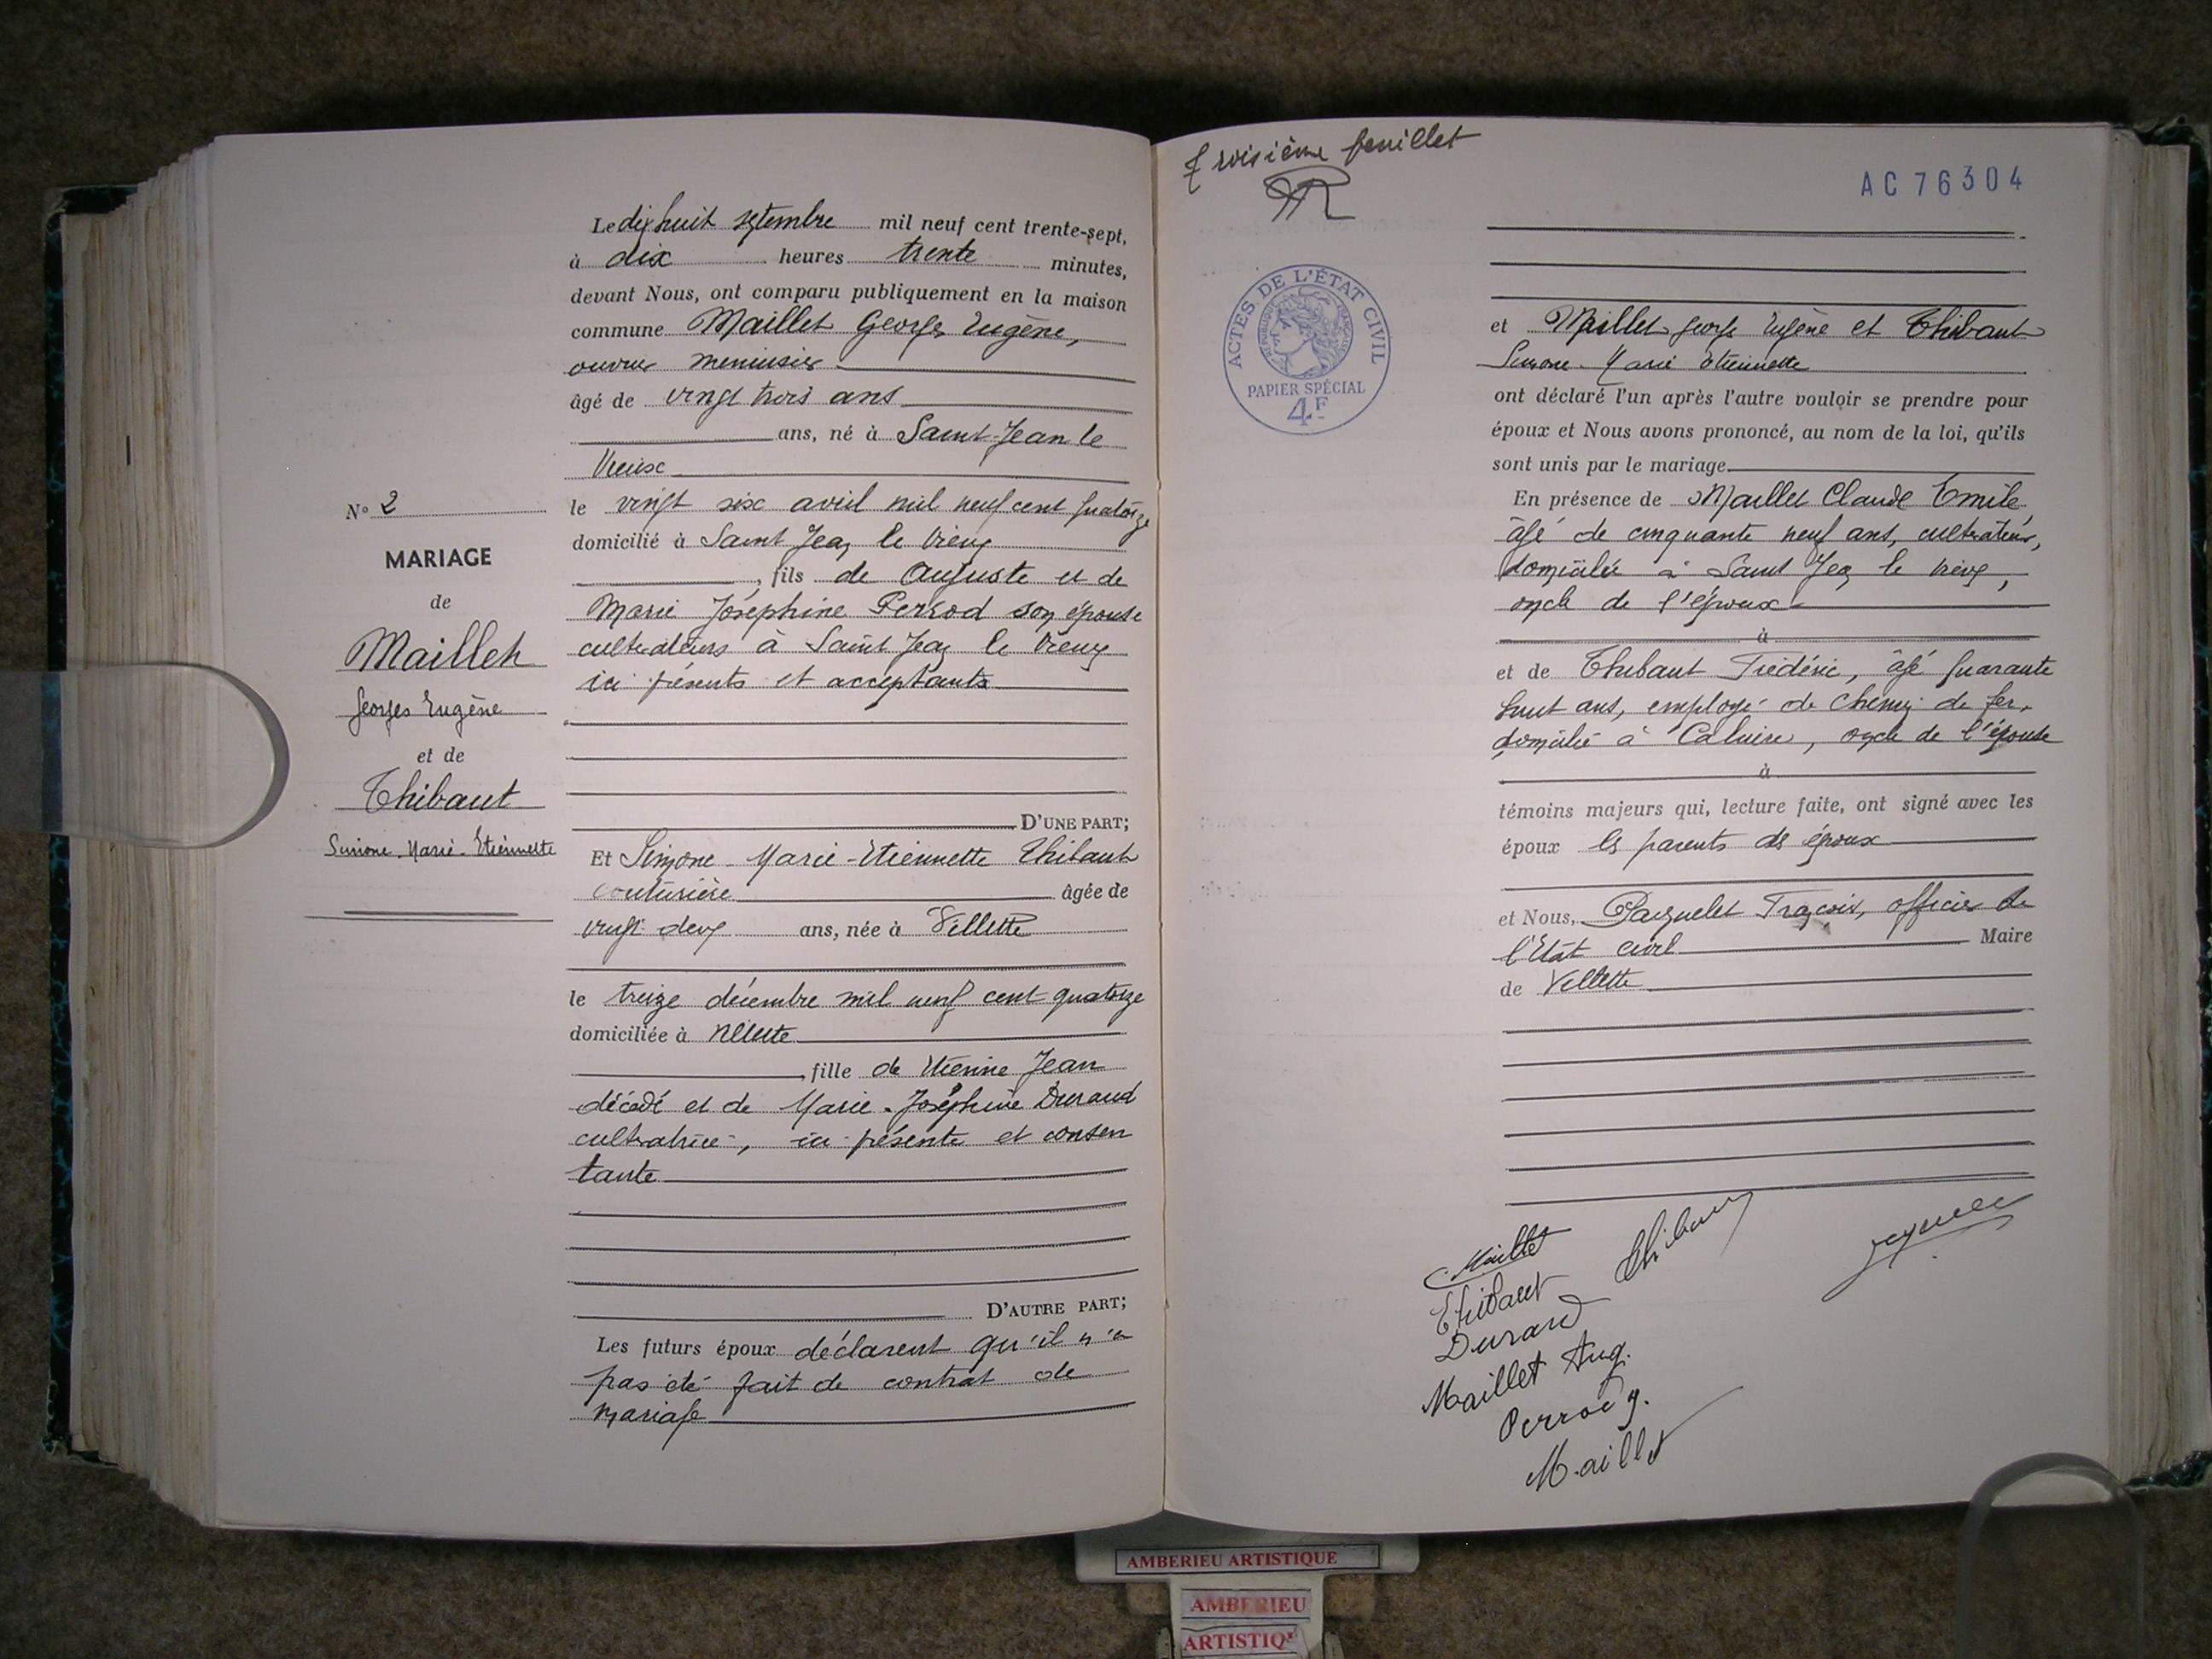 Le dix huit septembre mil neuf cent trente-sept,
à dix heures trente minutes,
devant Nous, ont comparu publiquement en la maison
commune Maillet Georges Eugène,
ouvrier menuisier
âgé de vingt trois ans
ans, né à Saint-Jean le
Vieux
N° 2
le vingt six avril mil neuf cent quatorze
domicilié à Saint Jean le Vieux
MARIAGE
de
Maillet
Georges Eugène
et de
Thibaut
Simone-Marie-Etiennette
, fils de Auguste et de
Marie Joséphine Perrod son épouse
cultivateurs à Saint Jean le Vieux
ici présents et acceptants
D'UNE PART;
Et Simone-Marie-Etiennette Thibaut
couturière âgée de
vingt-deux ans, née à Villette
le treize décembre mil neuf cent quatorze
domiciliée à Villette
, fille de Etienne Jean
décédé et de Marie-Joséphine Durand
cultivatrice, ici présente et consen
tante
D'AUTRE PART;
Les futurs époux déclarent qu'il n'a
pas été fait de contrat de
mariage
Troisième feuillet
AC 76304
ACTES DE L'ÉTAT CIVIL
RÉPUBLIQUE FRANÇAISE
PAPIER SPÉCIAL
4F
et Maillet Georges Eugène et Thibaut
Simone-Marie Etiennette
ont déclaré l'un après l'autre vouloir se prendre pour
époux et Nous avons prononcé, au nom de la loi, qu'ils
sont unis par le mariage
En présence de Maillet Claude Emile,
âgé de cinquante neuf ans, cultivateur,
domicilié à Saint Jean le Vieux,
oncle de l'époux
à
et de Thibaut Frédéric, âgé quarante
huit ans, employé de chemin de fer,
domicilié à Caluire, oncle de l'épouse
à
témoins majeurs qui, lecture faite, ont signé avec les
époux les parents des époux
et Nous, François, officier de
l'Etat civil Maire
de Villette
Maillet Thibaut
Thibaut
Durand
Maillet Aug.
Perrod
Maillet
AMBERIEU ARTISTIQUE
AMBERIEU
ARTISTIQ